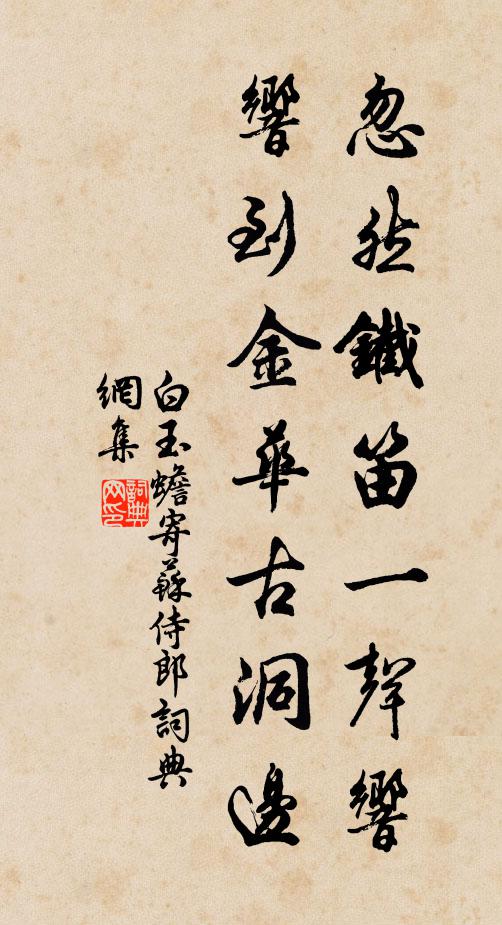 忽然鐵笛一聲響
響到金華古洞邊
白玉蟾寄蘇侍郎詞典
網集
詞典
网印